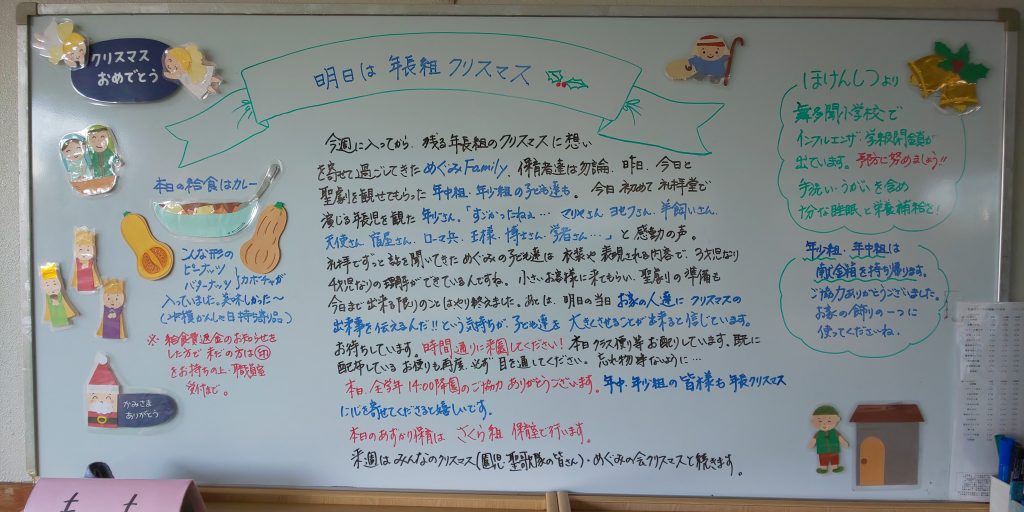 クリスマス
おめでとう
明日は 年長組 クリスマス
本日の給食はカレー
こんな形の
ピーナッツ
バターナッツ
カボチャが
入っていました。美味しかった〜
※ 給食費返金のお知らせを
した方で 未だの方は㊞
をお持ちの上、職員室
かみさま
ありがとう
今週に入ってから、残る年長組のクリスマスに想い
を寄せ過ごしてきためぐみFamily。保育者達は勿論、昨日、今日と
聖劇を観せてもらった年中組、年少組の子ども達も。今日初めて礼拝堂で
演じる年長児を観た 年少さん。「すごかったねぇ… マリヤさん ヨセフさん、羊飼いさん、
天使さん 宿屋さん、ローマ兵、王様、博士さん、学者さん…」と感動の声。
礼拝でずっと話を聞いてきためぐみの子ども達は 衣装や表現される内容で、3才児なり
4才児なりの理解ができているんですね。小さいお客様に来てもらい、聖劇の準備も
今日まで出来る限りのことはやり終えました。あとは、明日の当日 お家の人達に クリスマスの
出来事を伝えるんだ!!という気持ちが、子ども達を大きくさせることが出来ると信じています。
お待ちしています。時間通りに来園してください! 本日クラス便り等お配りしています。既に
配布しているお便りも再度、必ず目を通してください。忘れ物時なように…
本日、全学年 14:00降園のご協力ありがとうございます。年中、年少組の皆様も年長クリスマス
に心を寄せてくださると嬉しいです。
本日のあずかり保育は さくら組 保育室で行います。
来週は みんなのクリスマス(園児・聖歌隊の皆さん)・めぐみの会クリスマスと続きます。
ほけんしつより
舞多聞小学校で
インフルエンザ 学級閉鎖が
出ています。予防に努めましょう!!
手洗い・うがいを含め
十分な睡眠と栄養補給を!
年少組・年中組は
献金箱を持ち帰ります。
ご協力ありがとうございました。
お家の飾りの一つに
使ってくださいね。